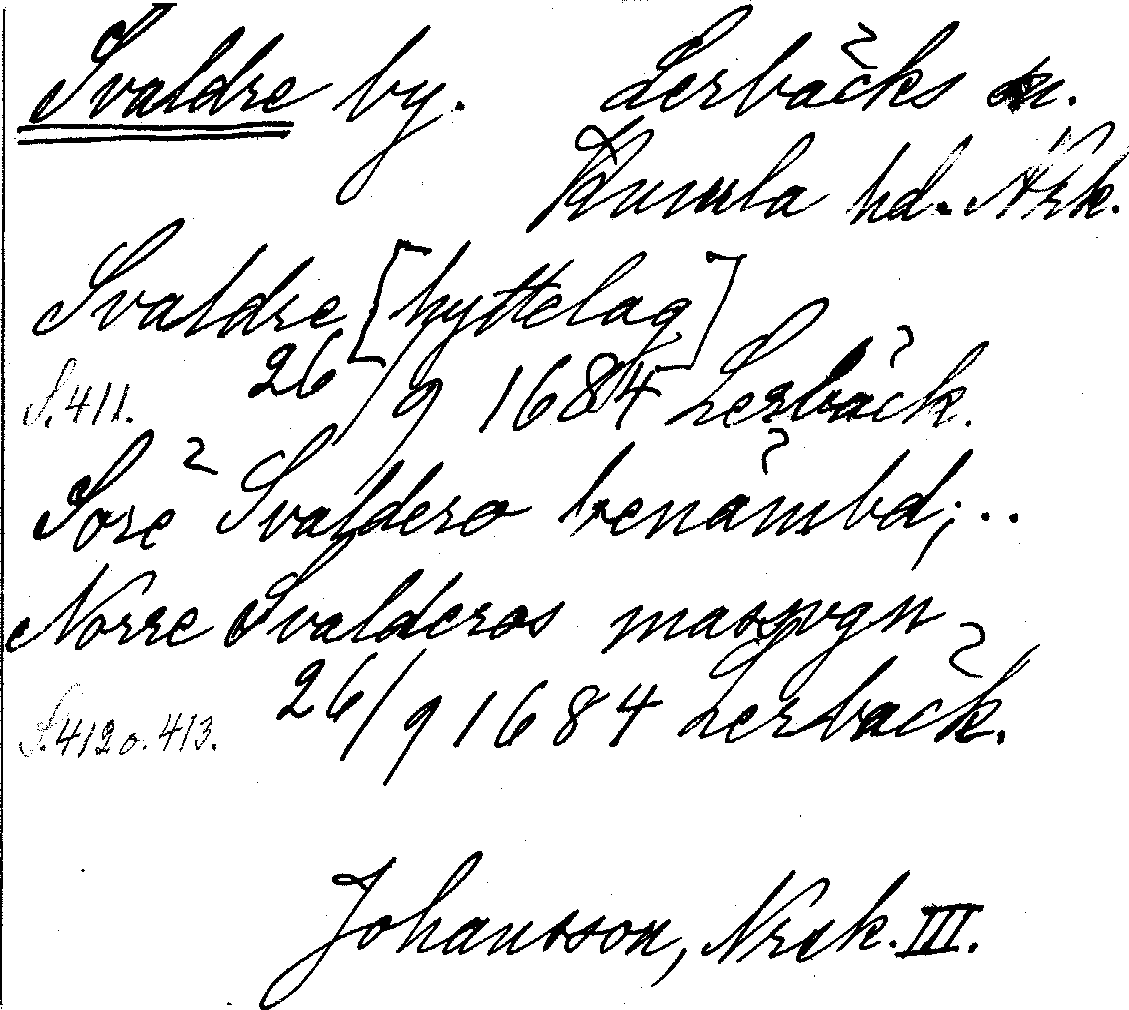 Svaldre by. Lerbäcks sn.
Kumla hd. Nrk.
Svaldre [hyttelag]
S. 411. 26/9 1684 Lerbäck.
Söre Svaldero benämbd; ..
Norre Svalderos massugn
S. 412 o. 413. 26/9 1684 Lerbäck.
Johansson, Nrck. III.